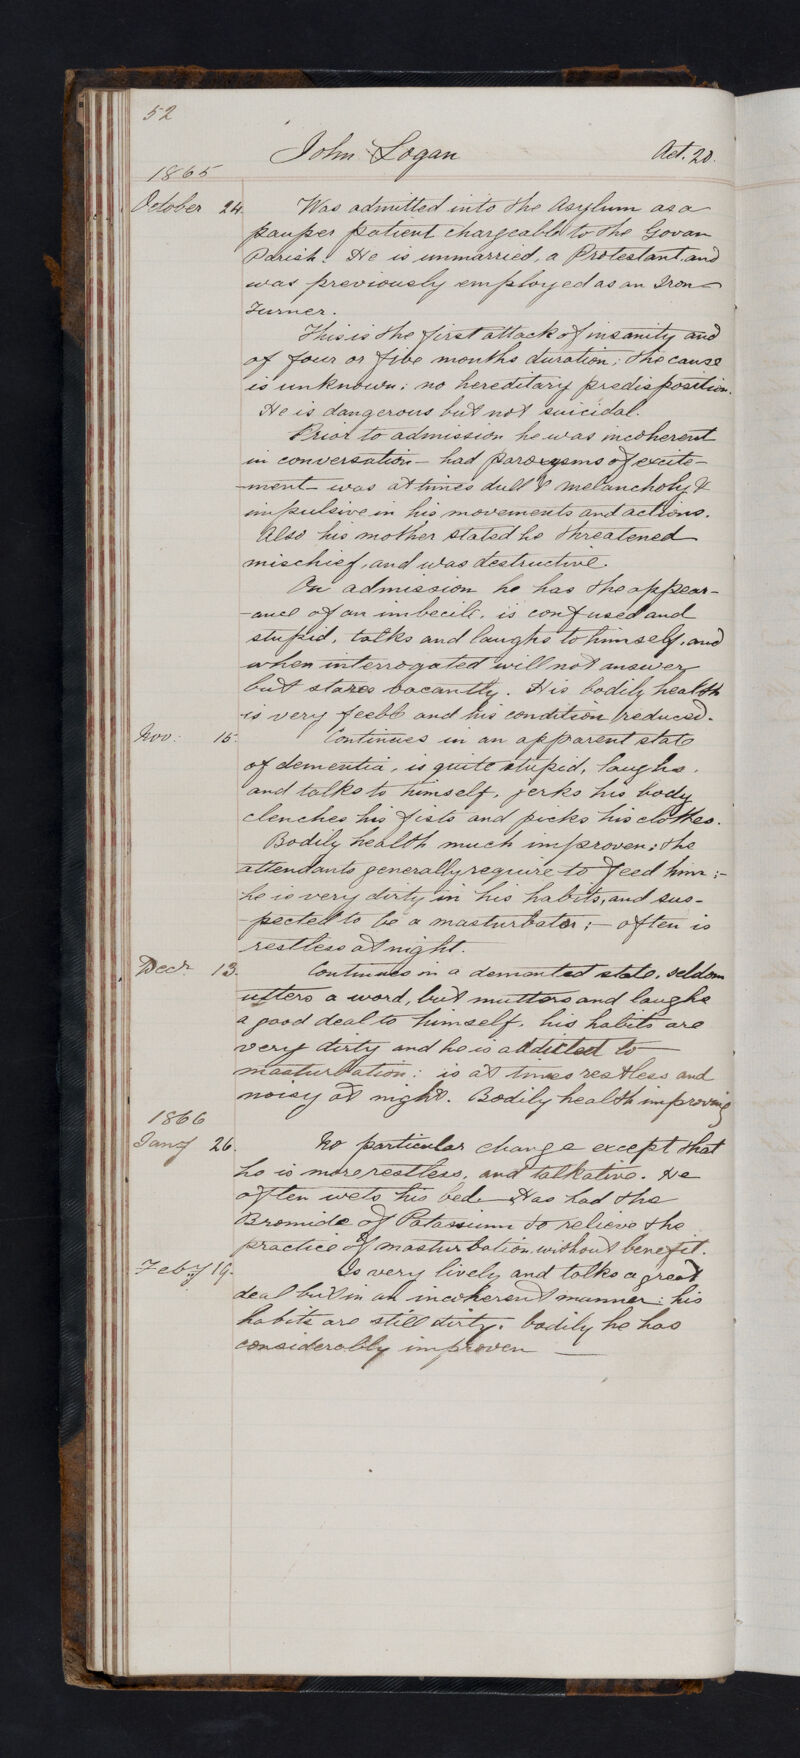 52
John Logan Aet. 20.
1865
October 24. Was admitted into the Asylum as a
pauper patient chargeable to the Govan
Parish. He is unmarried, a Protestant and
was previously employed as an Iron
Turner.
This is the first attack of insanity and
of four or five months duration; the cause
is unknown: no hereditary predisposition.
He is dangerous but not suicidal.
Prior to admission he was incoherent
in conversation - had paroxysms of excite-
-ment - was at times dull & melancholy, &
impulsive in his movements and actions.
Also his mother stated he threatened
mischief, and was destructive.
On admission he has the appear-
-ance of an imbecile, is confused and
stupid, talks and laughs to himself, and
when interrogated will not answer
but stares vacantly. His bodily health
is very feeble and his condition reduced.
Nov: 15. Continues in an apparent state
of dementia, is quite stupid, laughs,
and talks to himself, jerks his body
clenches his fists and picks his clothes.
Bodily health much improven; the
attendants generally require to feed him:-
he is very dirty in his habits, and sus-
-pected to be a masturbator; - often is
restless at night.
Decr. 13. Continues in a demented state, seldom
utters a word, but mutters and laughs
a good deal to himself, his habits are
very dirty and he is addicted to
masturbation: is at times restless and
noisy at night. Bodily health improving
1866
Jany 26. No particular change except that
he is more restless, and talkative. He
often wets his bed. Has had the
Bromide of Potassium to relieve the
practice of masturbation without benefit.
Feby 19. Is very lively and talks a great
deal but in an incoherent manner: his
habits are still dirty. bodily he has
considerably improven —